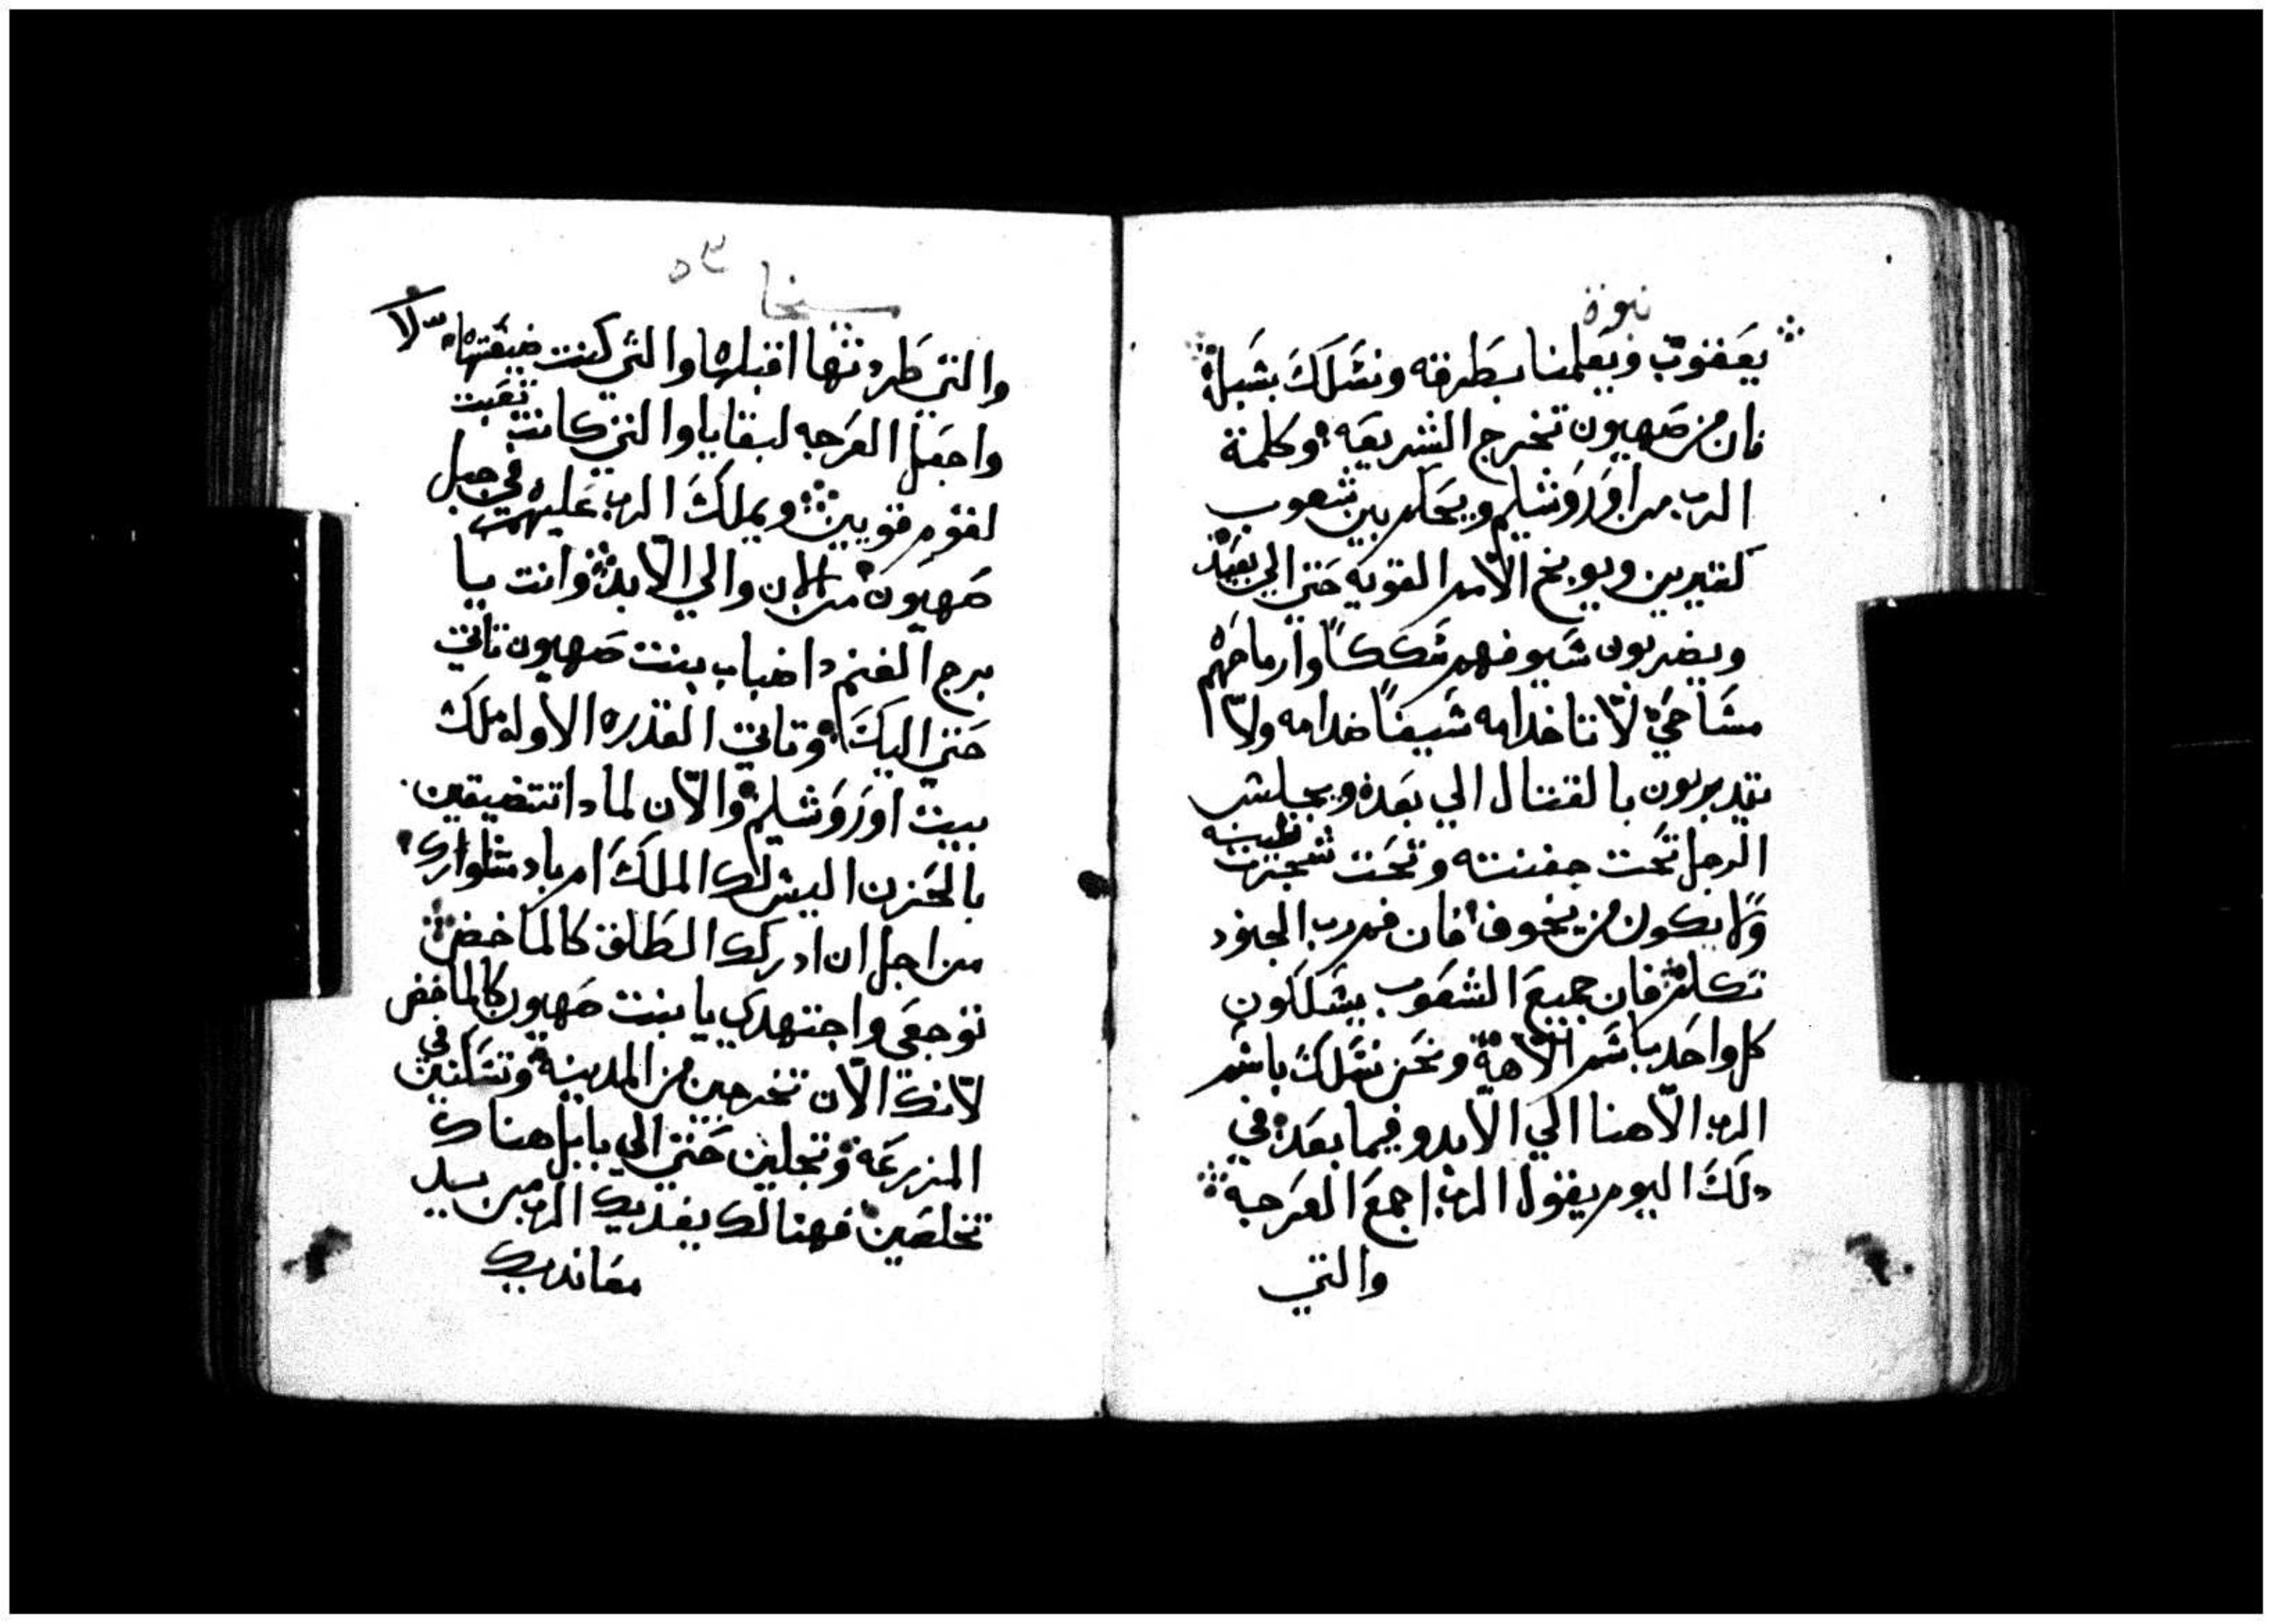 نبوة
يعقوب ويعلمنا بطرقه ونسلك بسبله
فان من صهيون تخرج الشريعه وكلمة
الرب من اورشليم ويحكم بين شعوب
كتيرين ويوبخ الامم القويه حتي الي بعيد
ويضربون سيوفهم سككاً وارماحهم
مساحي لا تاخد امه سيفاً ضد امه ولا
يتدربون بالقتال الي بعد ويجلس
الرجل تحت جفنته وتحت شجرت تينه
ولا يكون من يخوف فان فم رب الجنود
تكلم فان جميع الشعوب يسلكون
كل واحد باسم الاهه ونحن نسلك باسم
الرب الاهنا الي الابد وفيما بعد في
دلك اليوم يقول الرب اجمع العرجه
والتي
ميخا ٥٣
والتي طردتها اقبلها والتي كنت ضيقتها
واجعل العرجه لبقايا والتي كانت تعبت
لقوم قويين ويملك الرب عليهم في جبل
صهيون من الان والي الابد وانت يا
برج الغنم داضباب بنت صهيون تاتي
حتي اليك وتاتي القدره الاوله ملك
بيت اورشليم والان لمادا تتضيقين
بالحزن اليس لك الملك ام باد مشاورك
من اجل ان ادركك الطلق كالماخض
توجعي واجتهدي يا بنت صهيون كالماخض
لانك الان تخرجين من المدينه وتسكنين في
المزرعه وتجلين حتي الي بابل هناك
تخلصين فهنالك يفديك الرب من يد
معانديك